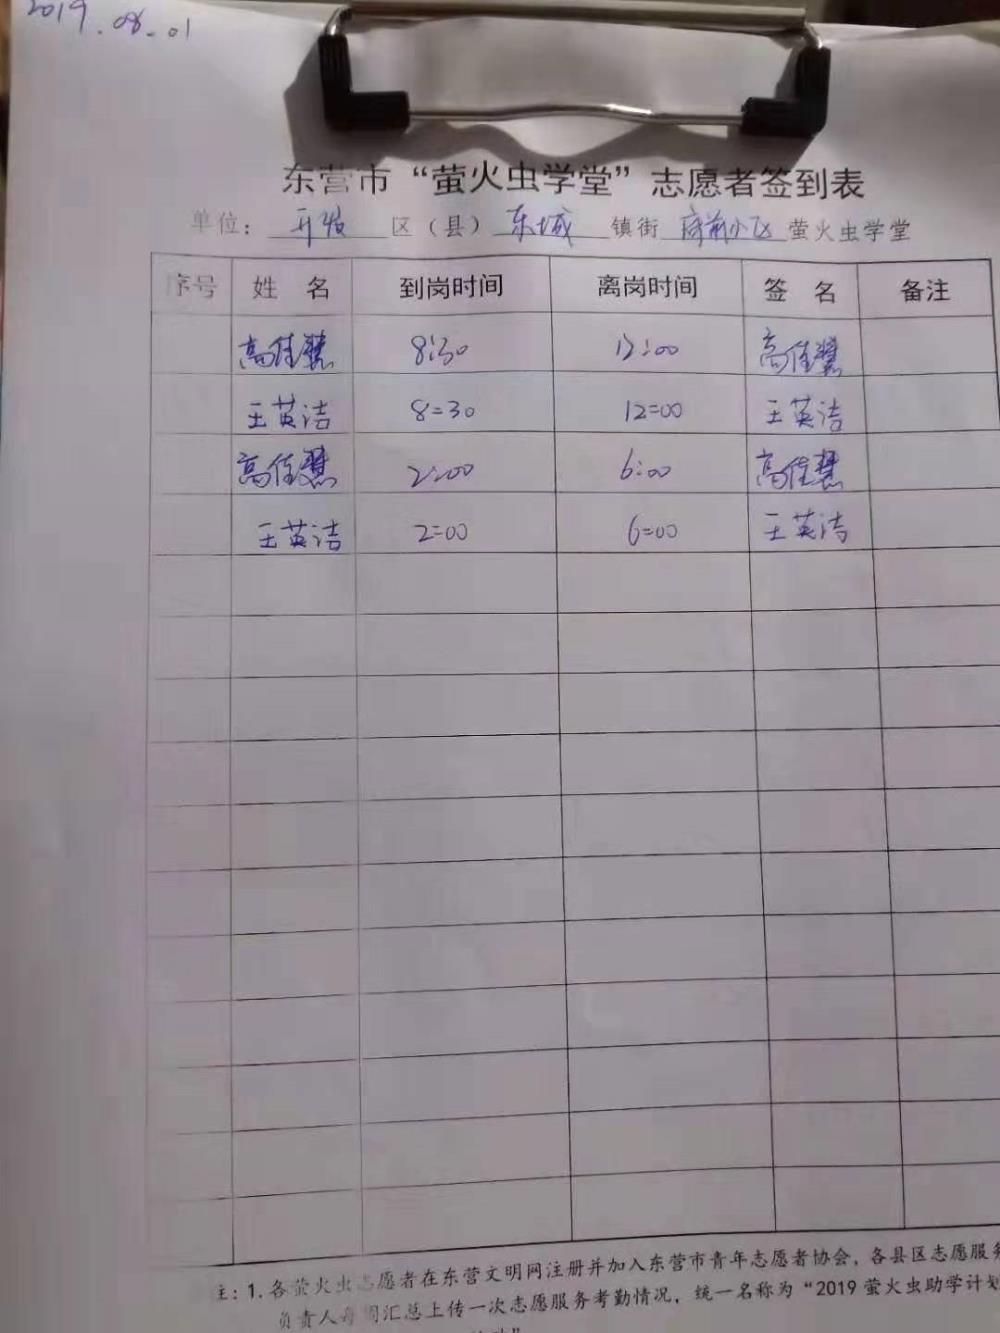 2019.08.01
东营市“萤火虫学堂”志愿者签到表
单位：开发区（县）东城镇街府前小区萤火虫学堂
序号 姓 名 到岗时间 离岗时间 签 名 备注
高佳慧 8:30 12:00 高佳慧
王英洁 8:30 12:00 王英洁
高佳慧 2:00 6:00 高佳慧
王英洁 2:00 6:00 王英洁
注：1.各萤火虫志愿者在东营文明网注册并加入东营市青年志愿者协会，各县区志愿服务
负责人每周汇总上传一次志愿服务考勤情况，统一名称为“2019萤火虫助学计划